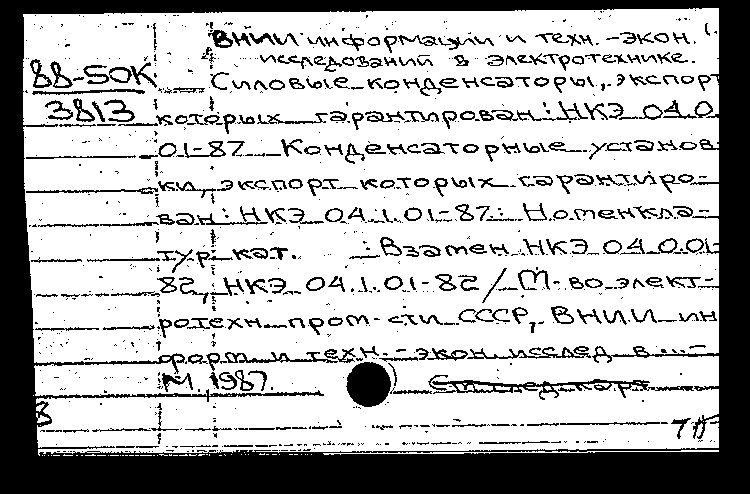 ВНИИ информации и техн.-экон.
исследований в электротехнике.
88-SOK
Силовые конденсаторы, экспорт
3813
которых гарантирован: НКЭ 04.0.
01-87 Конденсаторные установ
ки, экспорт которых гарантиро-
ван: НКЭ 04.1.01-87: Номенкла-
тур кат. : Взамен НКЭ 04.0.01-
82, НКЭ 04.1.01-82 / М-во элект-
ротехн. пром-сти СССР, ВНИИ ин
форм. и техн.-экон. исслед в...-
М., 1987.